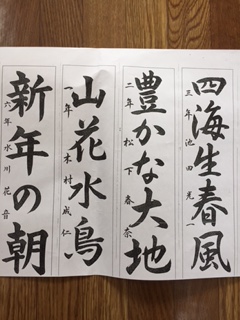 四海生春風
三年 池田光一
豊かな大地
二年 松下春奈
山花水鳥
一年 木村成仁
新年の朝
六年 水川花音